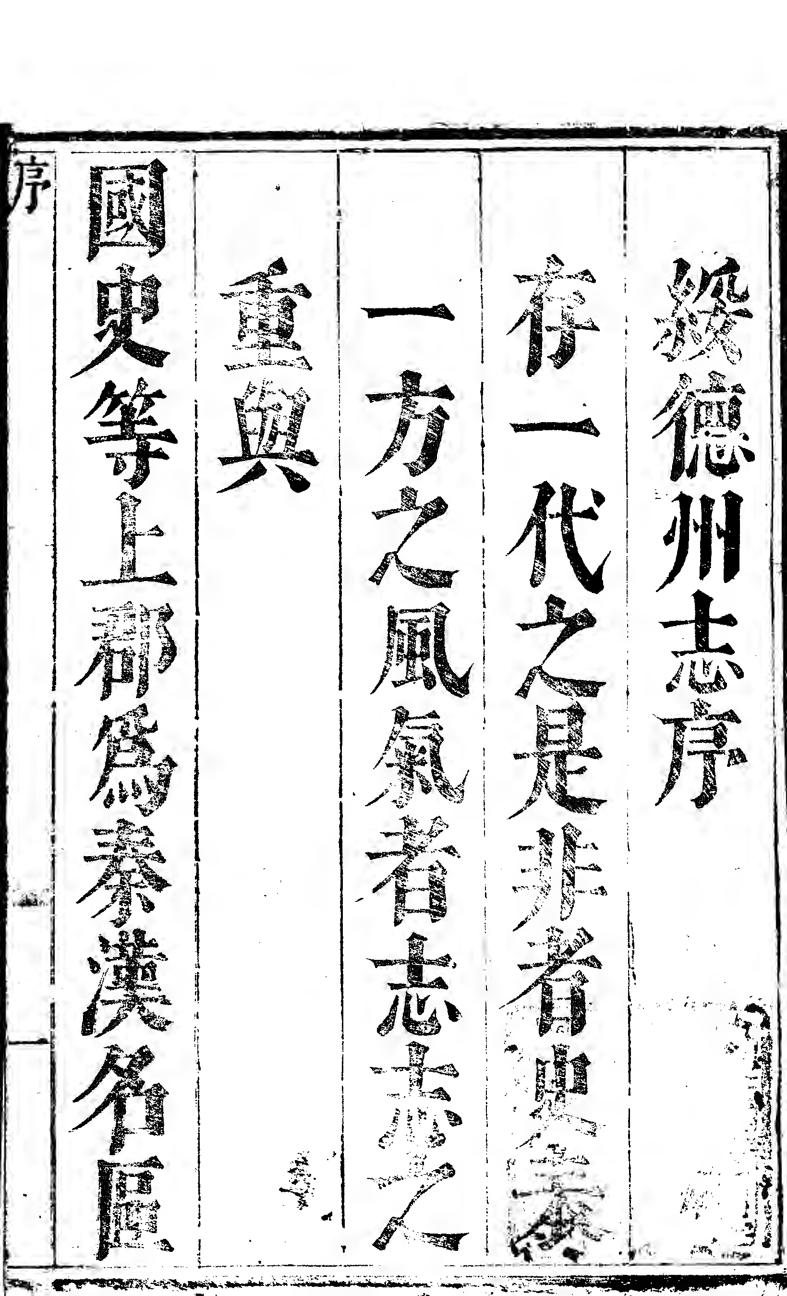 綏德州志序
存一代之是非者史表
一方之風氣者志志之
重與
國史等上郡爲秦漢名區
序
一